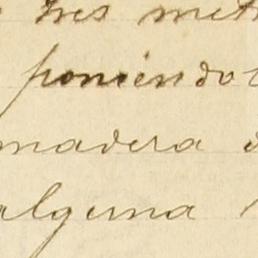 tres met
poniendo
madera
alguna